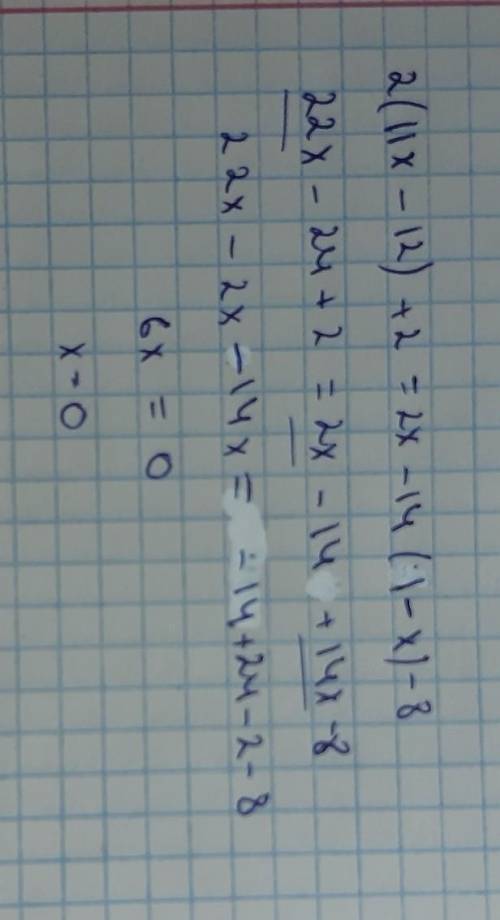 2(11x - 12) + 2 = 2x - 14(1 - x) - 8
22x - 24 + 2 = 2x - 14 + 14x - 8
22x - 2x - 14x = = 14 + 24 - 2 - 8
6x = 0
x - 0